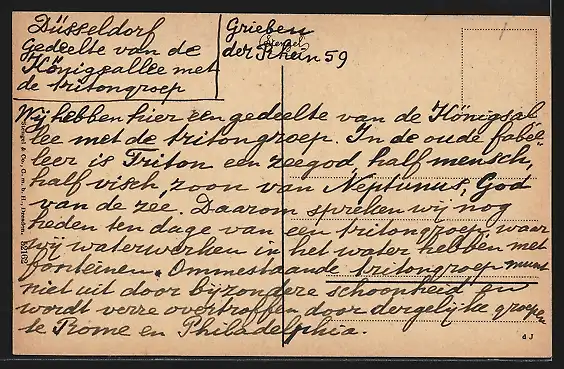 Düsseldorf
Gedeelte van de
Königsallee met
de tritongroep
Grieben
der Rhein 59
Stengel
Wij hebben hier een gedeelte van de Königsal-
lee met de tritongroep. In de oude fabel-
leer is Triton een zeegod, half mensch,
half visch, zoon van Neptunus, God
van de zee. Daarom spreken wij nog
heden ten dage van een tritongroep, waar
wij waterwerken in het water hebben met
fonteinen. Ommestaande tritongroep munt
niet uit door byzondere schoonheid, en
wordt verre overtroffen door dergelijke groepen
te Rome en Philadelphia.
Stengel & Co., G. m. b. H., Dresden.
d J